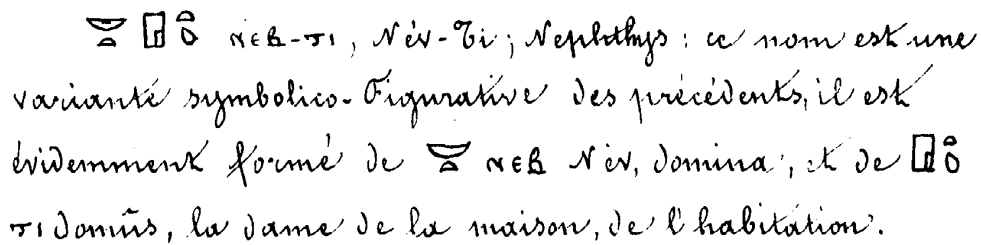 𓎟𓏏 𓉗 𓏏𓆇 ⲛⲉⲃ-ⲧⲓ, Név-Ti; Nephthys: ce nom est une
variante symbolico-Figurative des précédents, il est
évidemment formé de 𓎟𓏏 ⲛⲉⲃ Név, domina, et de 𓉗 𓏏𓆇
ⲧⲓ domûs, la dame de la maison, de l'habitation.